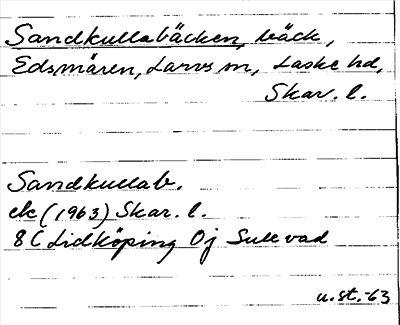 Sandkullabäcken, bäck,
Edsmären, Larvs sn, Laske hd,
Skar. l.
Sandkullab.
ek (1963) Skar. l.
8C Lidköping 0j Sulevad
u.st.-63